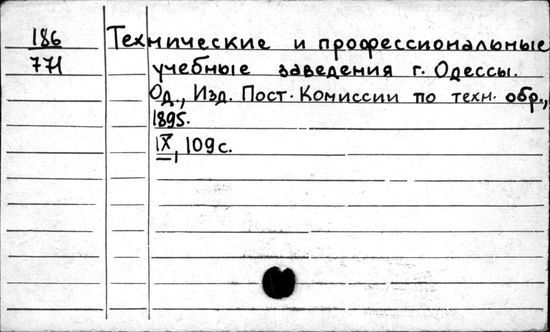 186
771
Технические и профессиональные
учебные заведения г. Одессы.
Од., Изд. Пост. Комиссии по техн. обр.,
1895.
IX, 109 с.